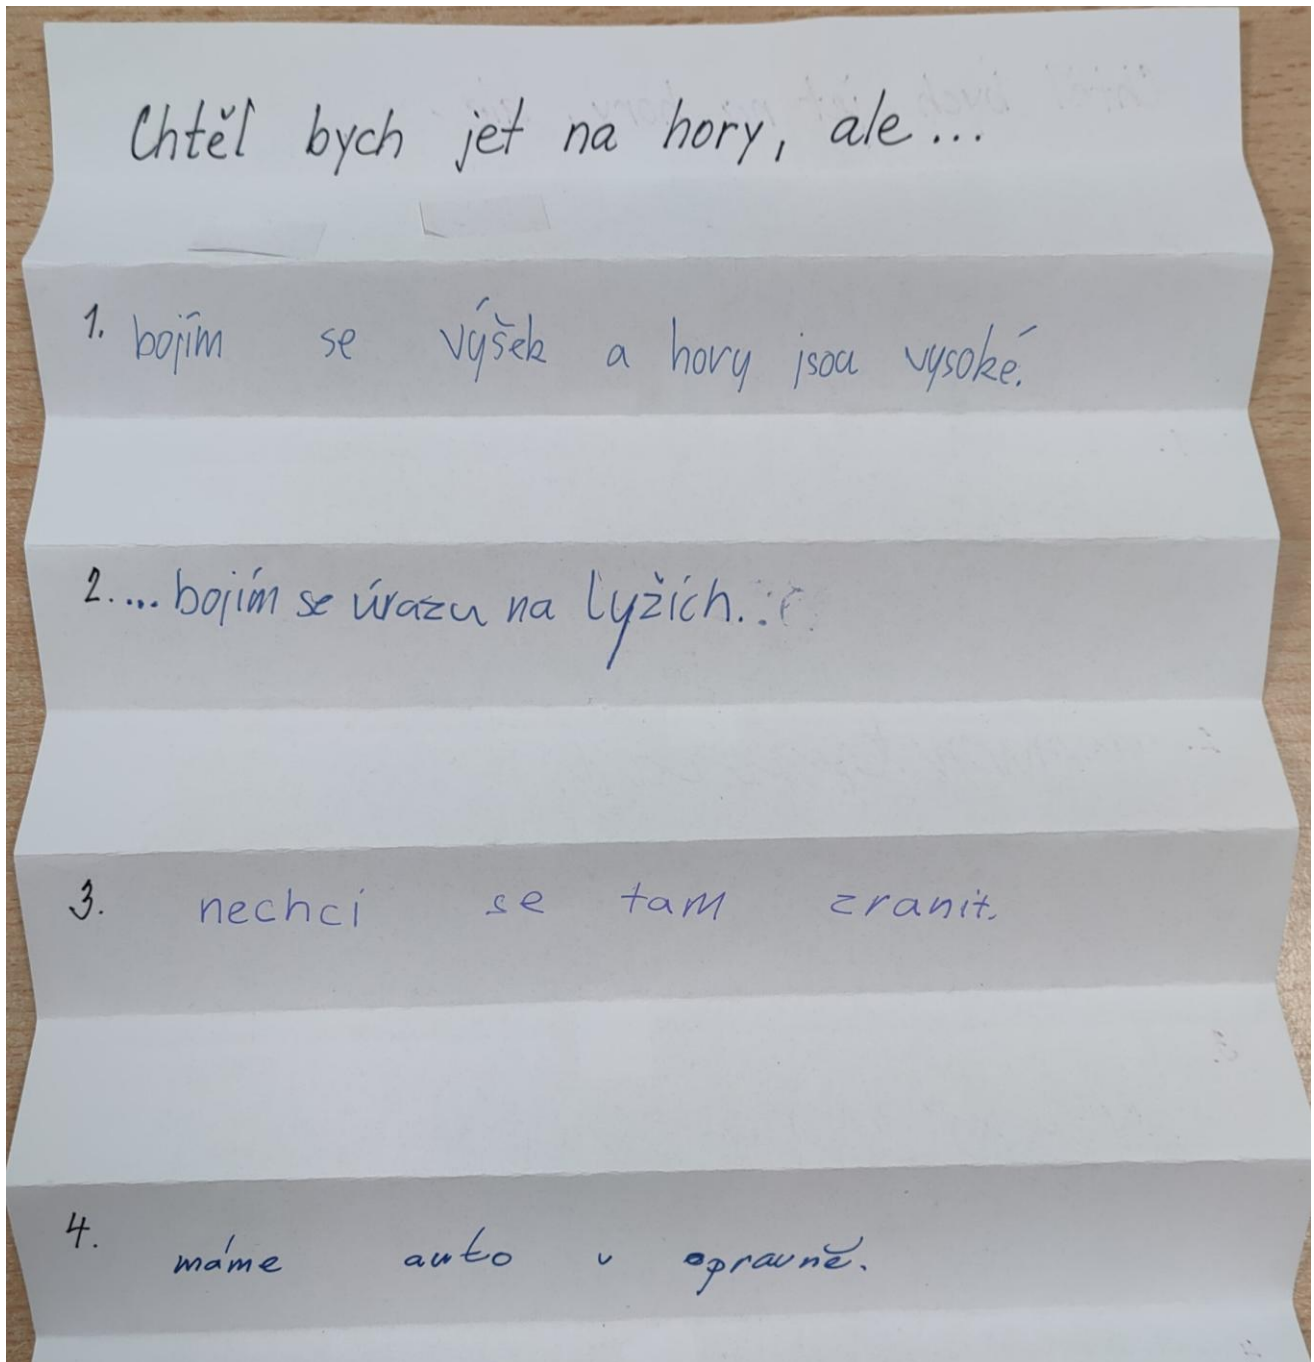 Chtěl bych jet na hory, ale...
1. bojím se výšek a hory jsou vysoké.
2. ... bojím se úrazu na lyžích.
3. nechci se tam zranit.
4. máme auto v opravně.